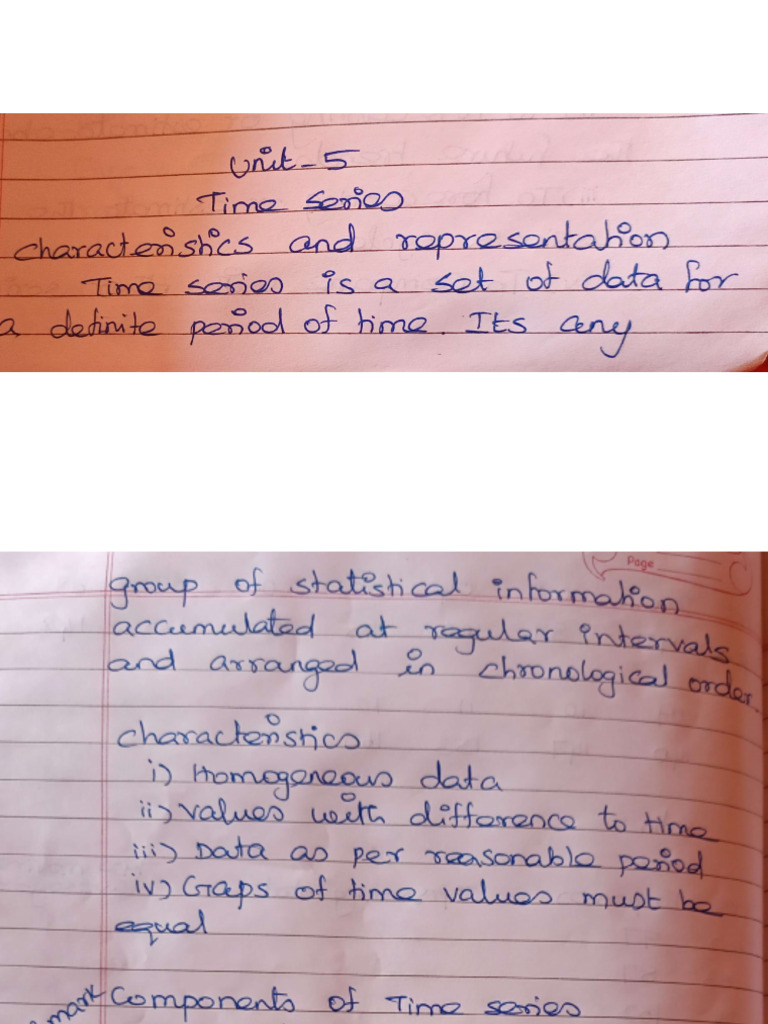 Unit - 5
Time series
characteristics and representation
Time series is a set of data for
a definite period of time. Its any
Page
group of statistical information
accumulated at regular intervals
and arranged in chronological order.
characteristics
i) Homogeneous data
ii) values with difference to time
iii) Data as per reasonable period
iv) Gaps of time values must be
equal
mark Components of Time series